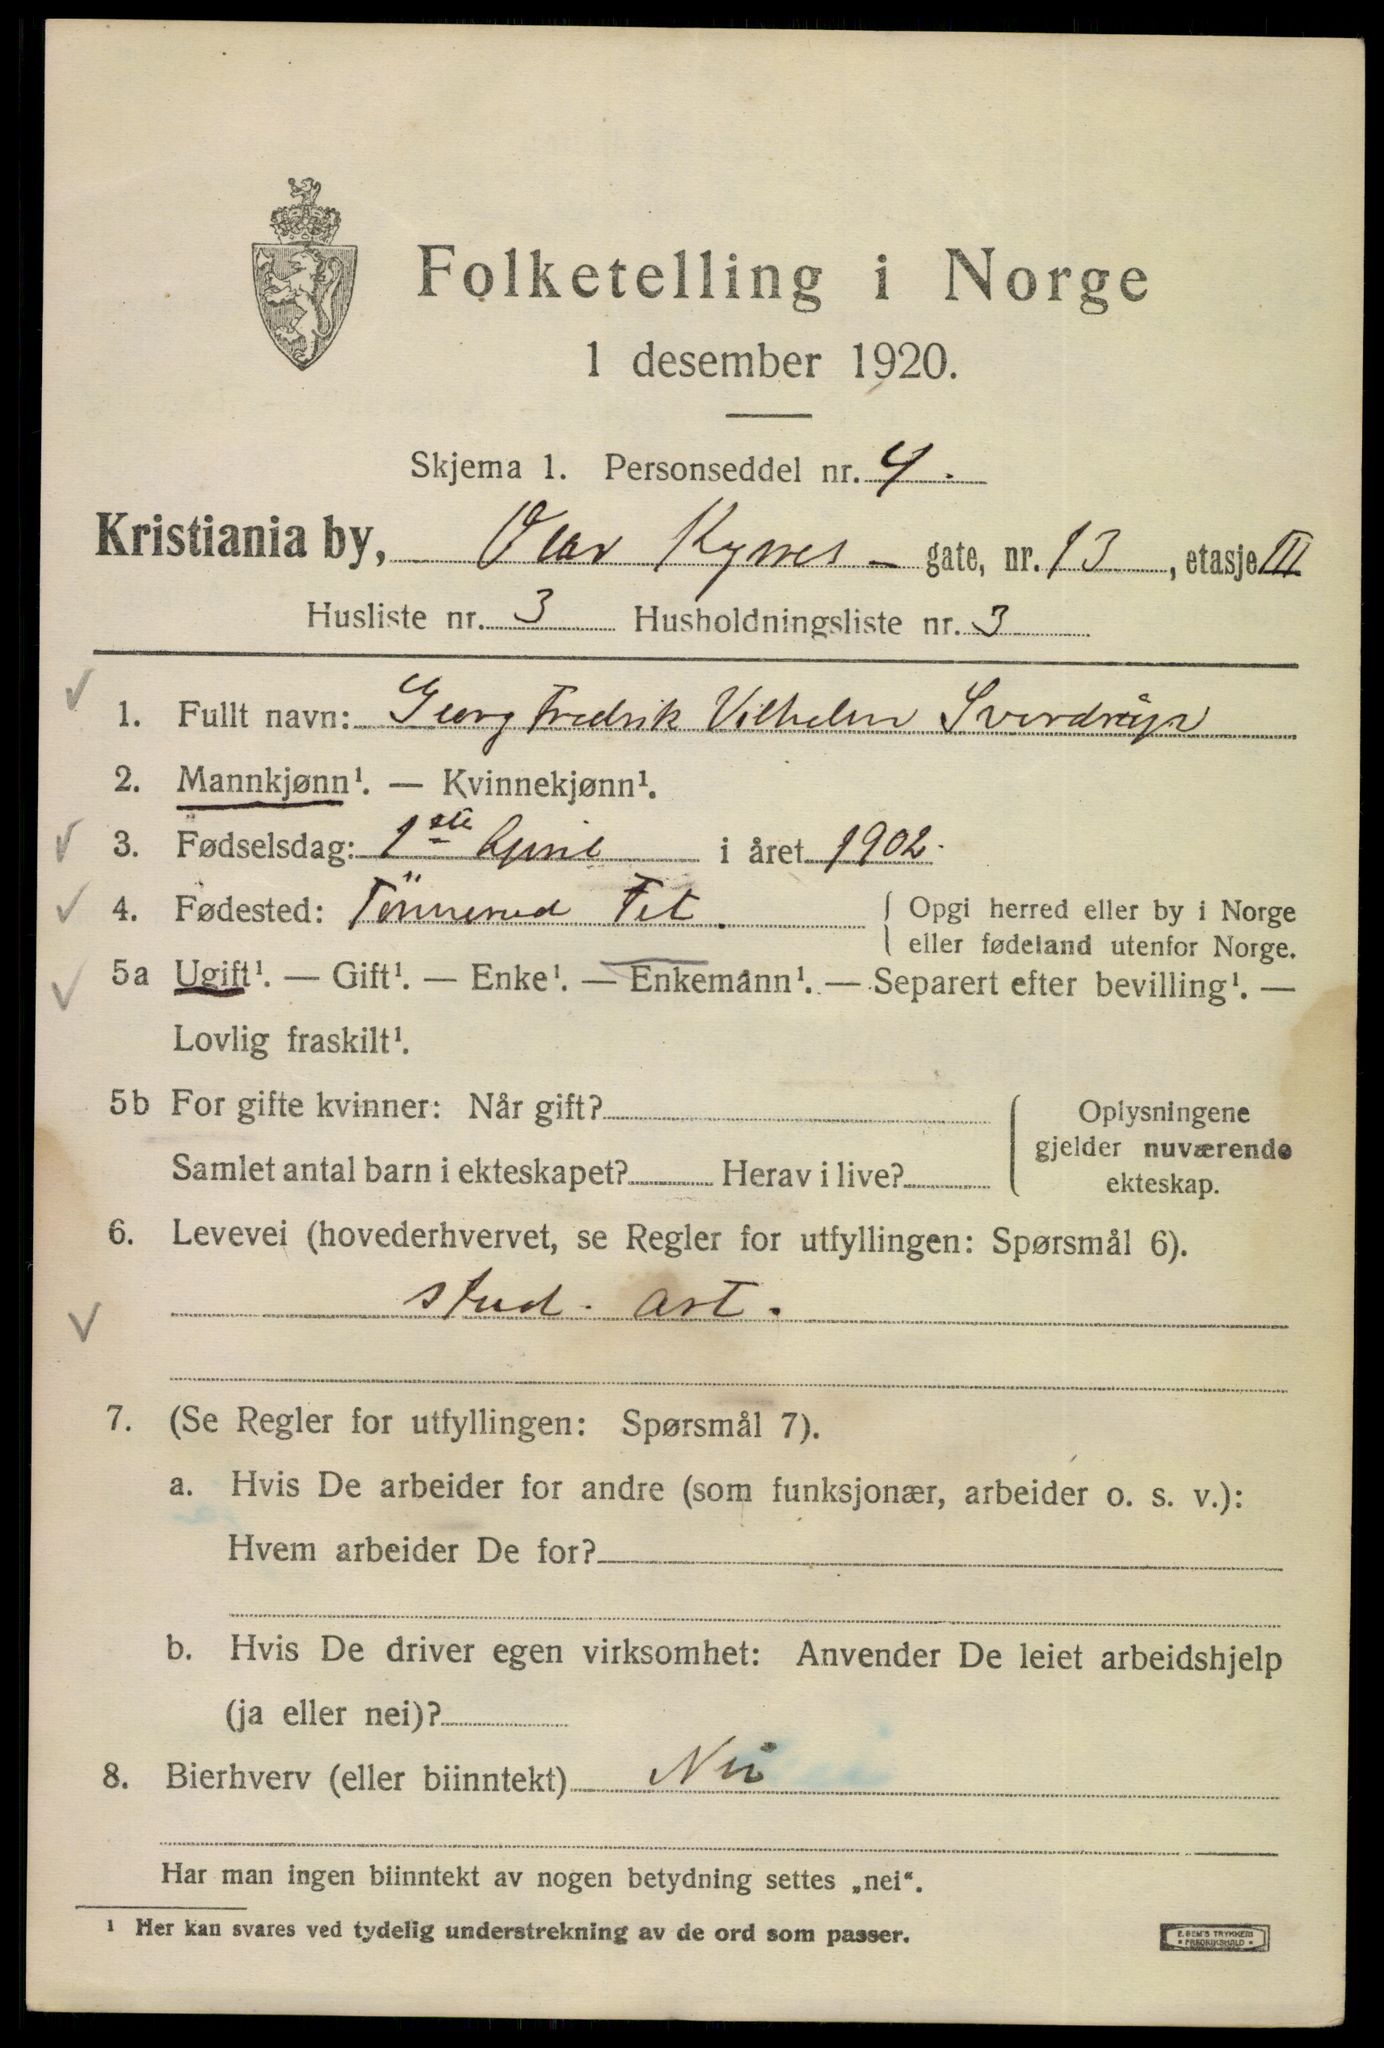 Folketelling i Norge
1 desember 1920.
Skjema 1. Personseddel nr. 4.
Kristiania by, Olav Kyrres - gate, nr. 13, etasje III
Husliste nr. 3 Husholdningsliste nr. 3
1. Fullt navn: Georg Fredrik Vilhelm Sverdrup
2. Mannkjønn¹. — Kvinnekjønn¹.
3. Fødselsdag: 1ste April i året 1902.
4. Fødested: Tönnerud Fet. Opgi herred eller by i Norge
eller fødeland utenfor Norge.
5a Ugift¹. — Gift¹. — Enke¹. — Enkemann¹. — Separert efter bevilling¹. —
Lovlig fraskilt¹.
5b For gifte kvinner: Når gift?
Samlet antal barn i ekteskapet? Herav i live?
Oplysningene
gjelder nuværende
ekteskap.
6. Levevei (hovederhvervet, se Regler for utfyllingen: Spørsmål 6).
stud. art.
7. (Se Regler for utfyllingen: Spørsmål 7).
a. Hvis De arbeider for andre (som funksjonær, arbeider o. s. v.):
Hvem arbeider De for?
b. Hvis De driver egen virksomhet: Anvender De leiet arbeidshjelp
(ja eller nei)?
8. Bierhverv (eller biinntekt) Nei
Har man ingen biinntekt av nogen betydning settes „nei“.
¹ Her kan svares ved tydelig understrekning av de ord som passer.
E. SEM'S TRYKKERI
FREDRIKSHALD